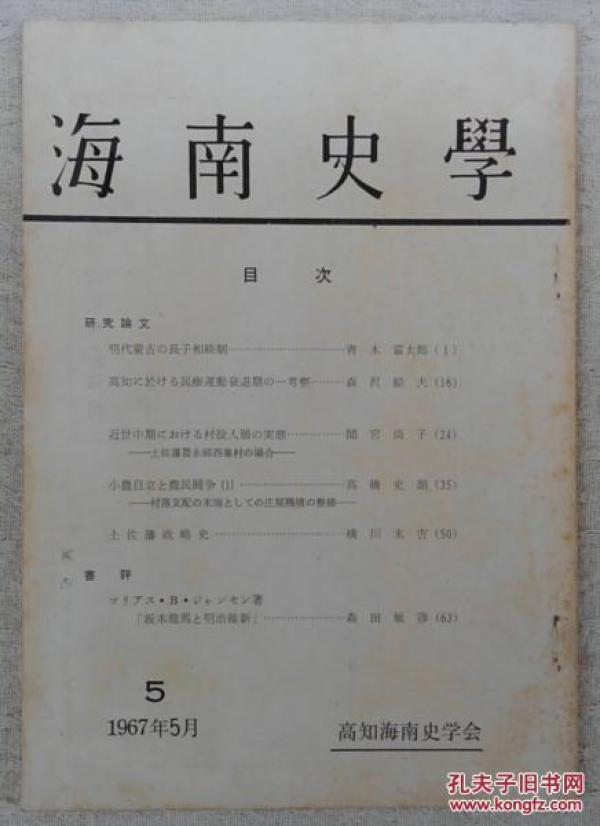 海南史學
目次
研究論文
明代蒙古の長子相続制……………………青木富太郎(1)
高知に於ける民権運動衰退期の一考察………森沢 夫(16)
近世中期における村役人層の実態……………間宮尚子(24)
――土佐藩 西 村の場合――
小農自立と農民闘争(1)……………………高橋史朗(35)
――村落支配の末端としての庄屋機構の整備――
土佐藩政略史……………………横川末吉(50)
書評
マリアス・B・ジャンセン著
「坂本龍馬と明治維新」……………………森田敏彦(63)
5
1967年5月
高知海南史学会
孔夫子旧书网
www.kongfz.com